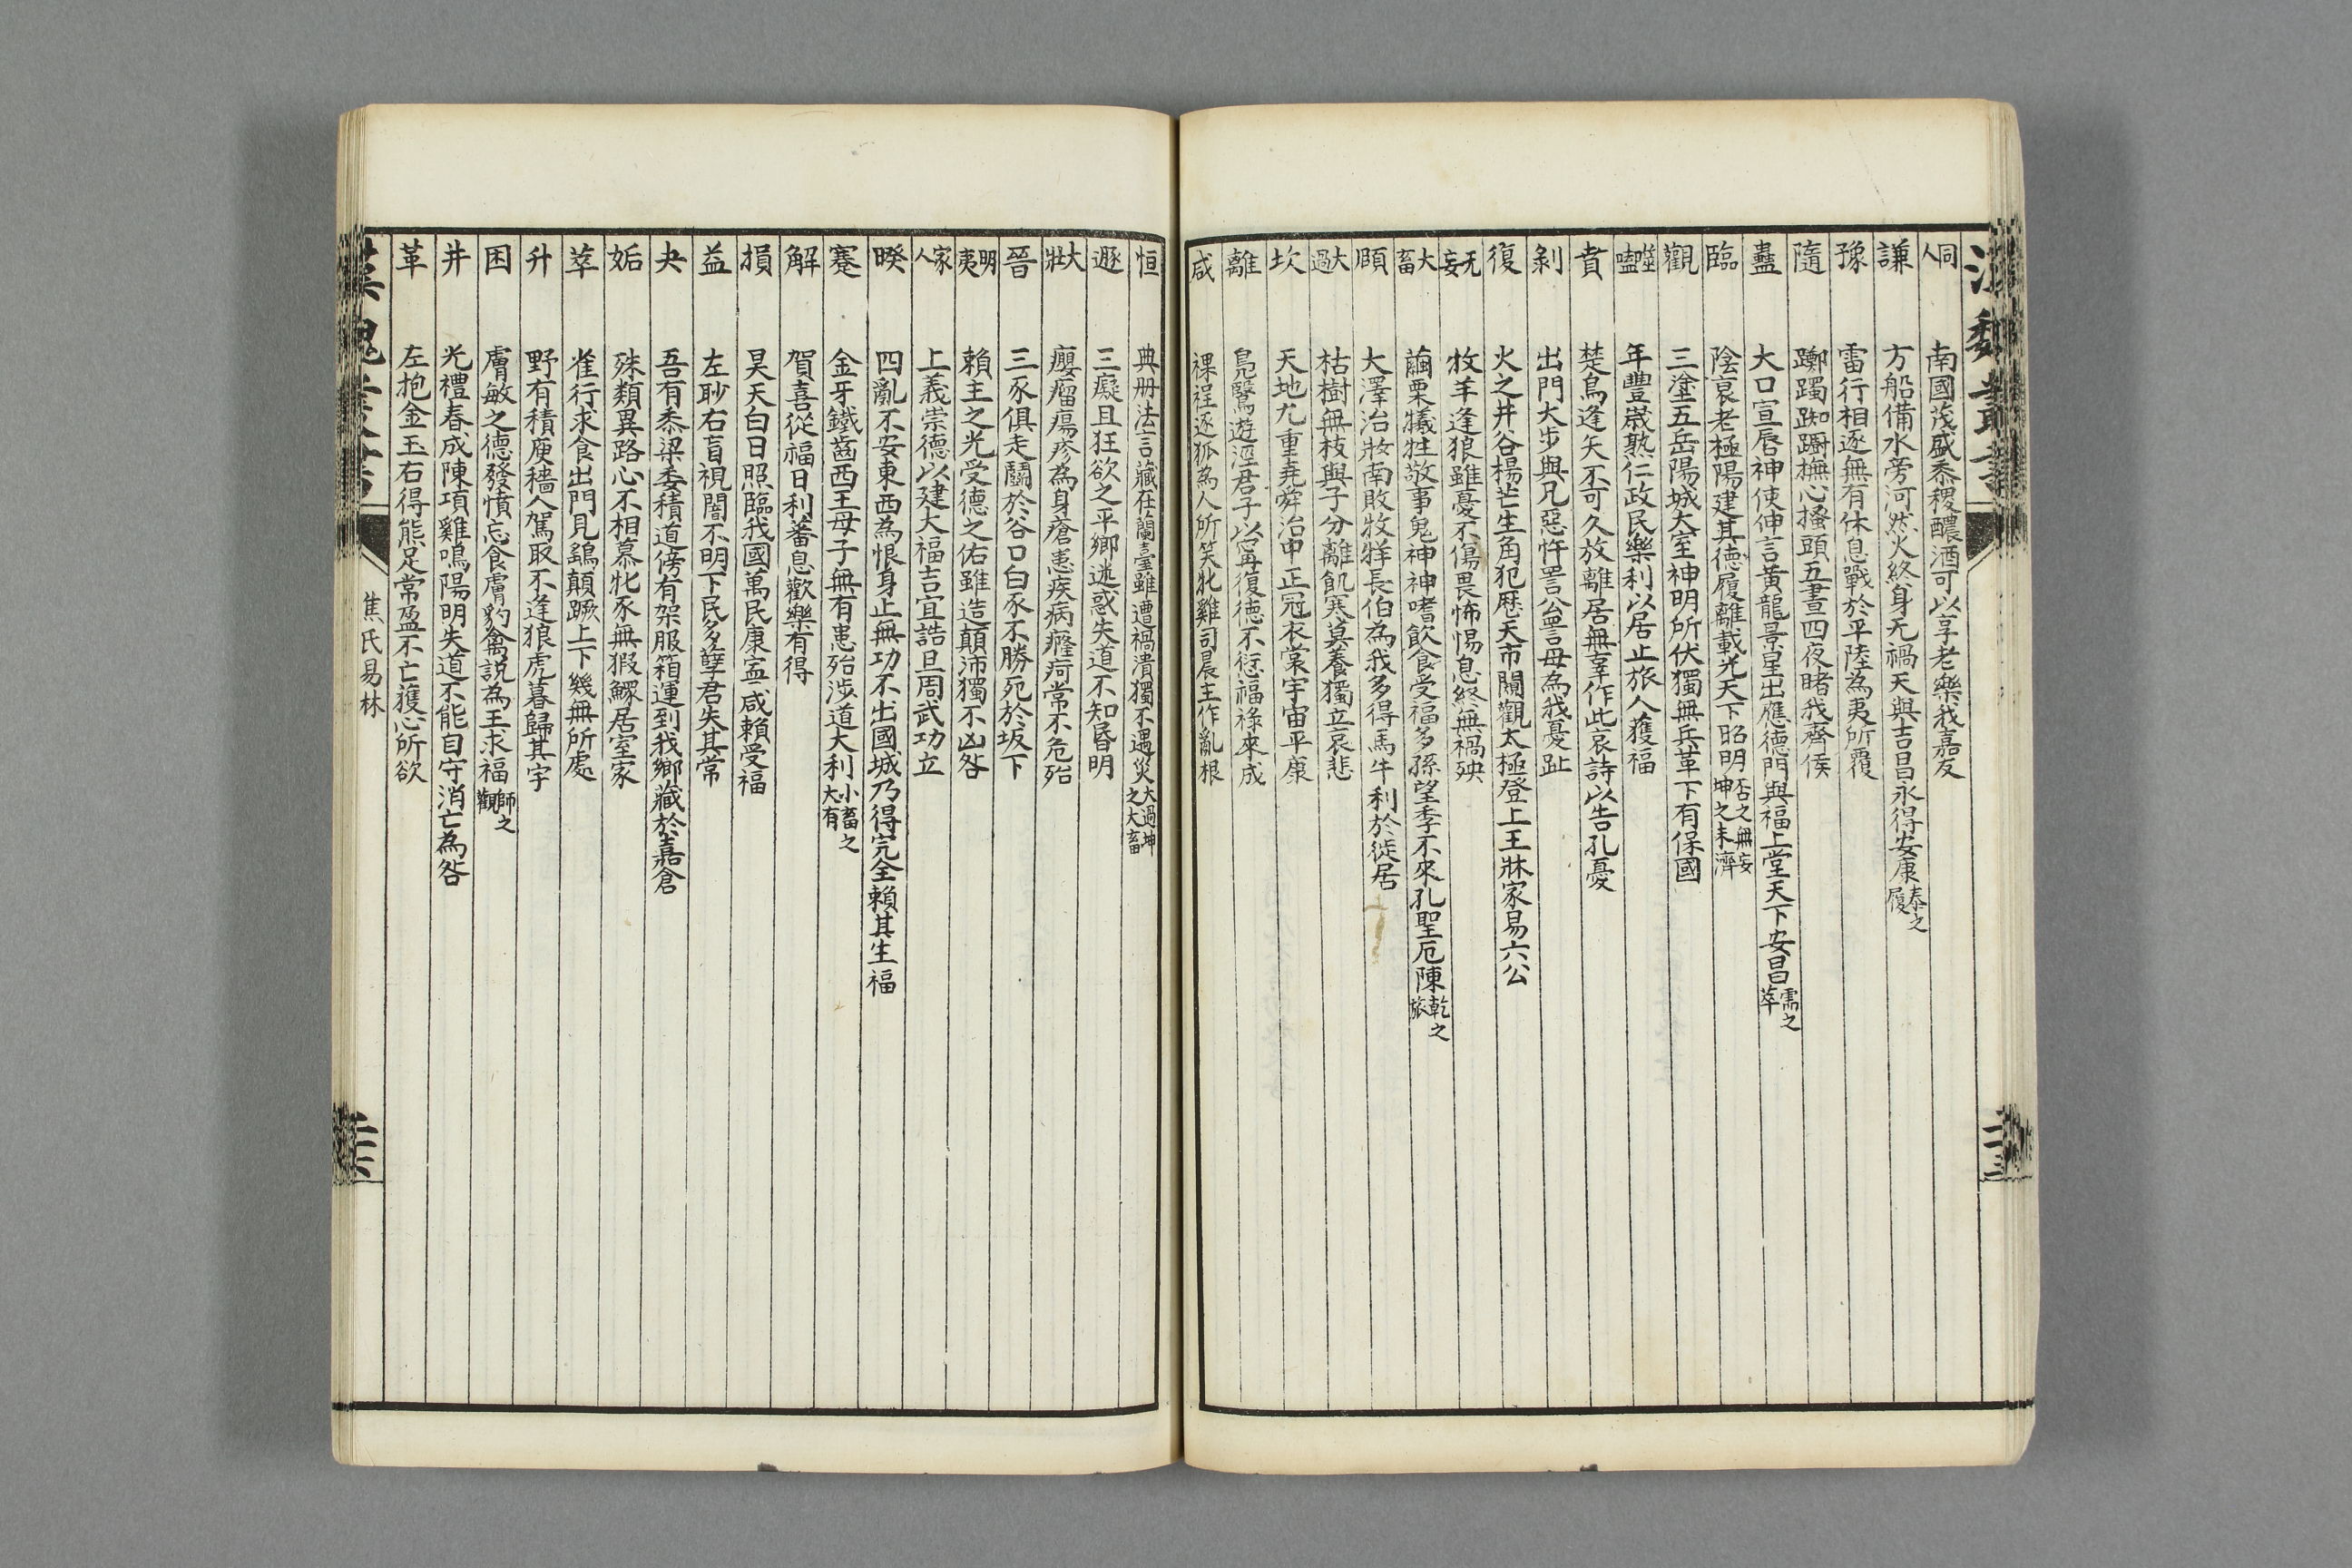 同人 南國茂盛黍稷醲酒可以享老樂我嘉友
謙 方船備水旁河然火終身无禍天與吉昌永得安康泰之履
豫 雷行相逐無有休息戰於平陸為夷所覆
隨 躑躅踟躕撫心搔頭五晝四夜睹我齊侯
蠱 大口宣唇神使伸言黃龍景星出應德門與福上堂天下安昌需之萃
臨 陰衰老極陽建其德履離載光天下昭明否之無妄坤之未濟
觀 三塗五岳陽城大室神明所伏獨無兵革下有保國
噬嗑 年豐歲熟仁政民樂利以居止旅人獲福
賁 楚鳥逢矢不可久放離居無羣作此哀詩以告孔憂
剝 出門大步與凡惡忤詈公詈母為我憂趾
復 火之井谷楊芒生角犯歷天市闚觀太極登上王牀家易六公
无妄 牧羊逢狼雖憂不傷畏怖惕息終無禍殃
大畜 繭栗犧牲敬事鬼神神嗜飲食受福多孫望季不來孔聖厄陳乾之旅
頤 大澤治妝南敗牧牂長伯為我多得馬牛利於徙居
大過 枯樹無枝與子分離飢寒莫養獨立哀悲
坎 天地九重堯舜治中正冠衣裳宇宙平康
離 鳧鷖遊涇君子以寧復德不愆福祿來成
咸 裸裎逐狐為人所笑牝雞司晨主作亂根
恒 典册法言藏在蘭臺雖遭禍潰獨不遇災大過坤之大畜
遯 三癡且狂欲之平鄉迷惑失道不知昏明
大壯 癭瘤瘍疹為身瘡患疾病癃痾常不危殆
晉 三豕俱走鬭於谷口白豕不勝死於坂下
明夷 賴主之光受德之佑雖造顛沛獨不凶咎
家人 上義崇德以建大福吉宜誥旦周武功立
睽 四亂不安東西為恨身止無功不出國城乃得完全賴其生福
蹇 金牙鐵齒西王母子無有患殆涉道大利小畜之大有
解 賀喜從福日利蕃息歡樂有得
損 昊天白日照臨我國萬民康寍咸賴受福
益 左眇右盲視闇不明下民多孽君失其常
夬 吾有黍粱委積道傍有架服箱運到我鄉藏於嘉倉
姤 殊類異路心不相慕牝豕無猳鰥居室家
萃 雀行求食出門見鷂顛蹶上下幾無所處
升 野有積庾穡人駕取不逢狼虎暮歸其宇
困 膚敏之德發憤忘食膚豹禽説為王求福師之觀
井 光禮春成陳項雞鳴陽明失道不能自守消亡為咎
革 左抱金玉右得熊足常盈不亡獲心所欲
焦氏易林